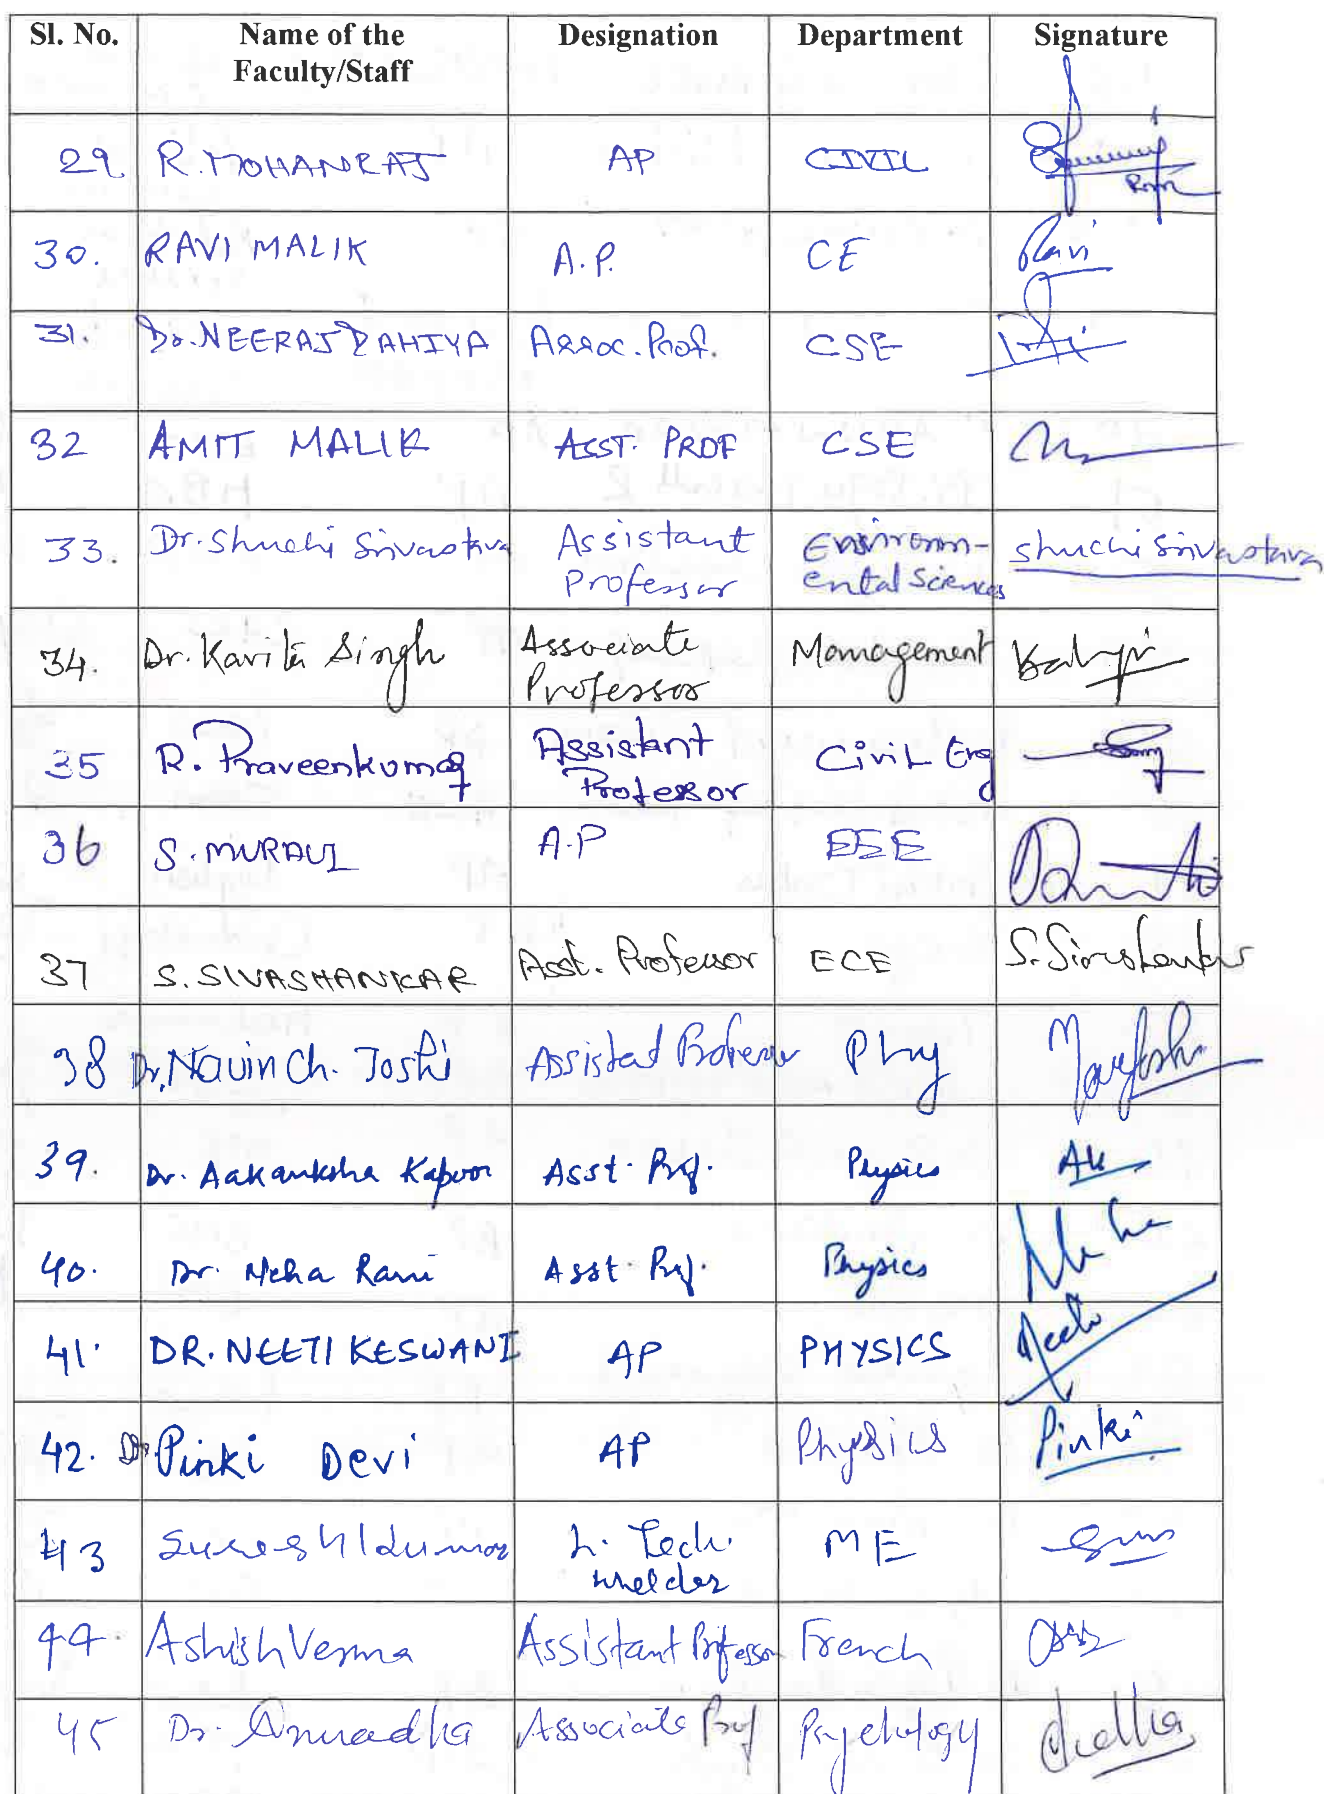 Sl. No. Name of the Faculty/Staff Designation Department Signature
29. R. MOHANRAJ AP CIVIL
30. RAVI MALIK A.P. CE Ravi
31. Dr. NEERAJ DAHIYA Assoc. Prof. CSE
32 AMIT MALIK ASST. PROF CSE
33. Dr. Shuchi Srivastava Assistant Professor Environm-ental Sciences Shuchi Srivastava
34. Dr. Kavita Singh Associate Professor Management
35 R. Praveenkumar Assistant Professor Civil Eng
36 S. MURALI A.P EEE
37 S. SIVASHANKAR Asst. Professor ECE S. Sivashankar
38 Dr. Navin Ch. Joshi Assistant Professor Phy
39. Dr. Aakanksha Kapoor Asst. Prof. Physics AK
40. Dr. Neha Rani Asst. Prof. Physics Neha
41. DR. NEETI KESWANI AP PHYSICS Neeti
42. Dr. Pinki Devi AP Physics Pinki
43 Suresh Kumar L. Tech. Welder ME
44. Ashish Verma Assistant Professor French
45 Dr. Anuradha Associate Prof Psychology